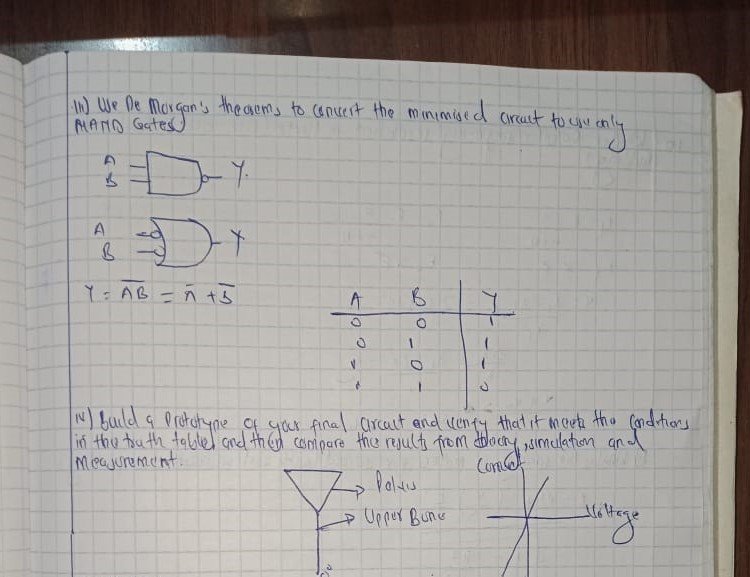 iii) Use De Morgan's theorems to convert the minimised circuit to use only
NAND Gates
A
B
Y.
A
B
Y
Y = \overline{AB} = \overline{A} + \overline{B}
A B Y
0 0 1
0 1 1
1 0 1
1 1 0
iv) Build a Prototype of your final circuit and verify that it meets the conditions
in the truth table, and then compare the results from theory, simulation and
Measurement.
Pelvis
Upper Bone
Voltage